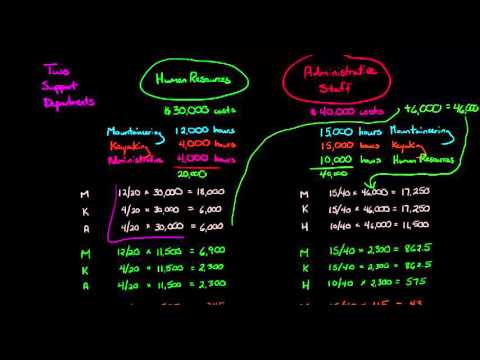 Two
Support
Departments
Human Resources
$30,000 costs
Mountaineering 12,000 hours
Kayaking 4,000 hours
Administrative 4,000 hours
20,000
M 12/20 × 30,000 = 18,000
K 4/20 × 30,000 = 6,000
A 4/20 × 30,000 = 6,000
M 12/20 × 11,500 = 6,900
K 4/20 × 11,500 = 2,300
A 4/20 × 11,500 = 2,300
Administrative
Staff
$40,000 costs +6,000 = 46,000
15,000 hours Mountaineering
15,000 hours Kayaking
10,000 hours Human Resources
40,000
M 15/40 × 46,000 = 17,250
K 15/40 × 46,000 = 17,250
H 10/40 × 46,000 = 11,500
M 15/40 × 2,300 = 862.5
K 15/40 × 2,300 = 862.5
H 10/40 × 2,300 = 575